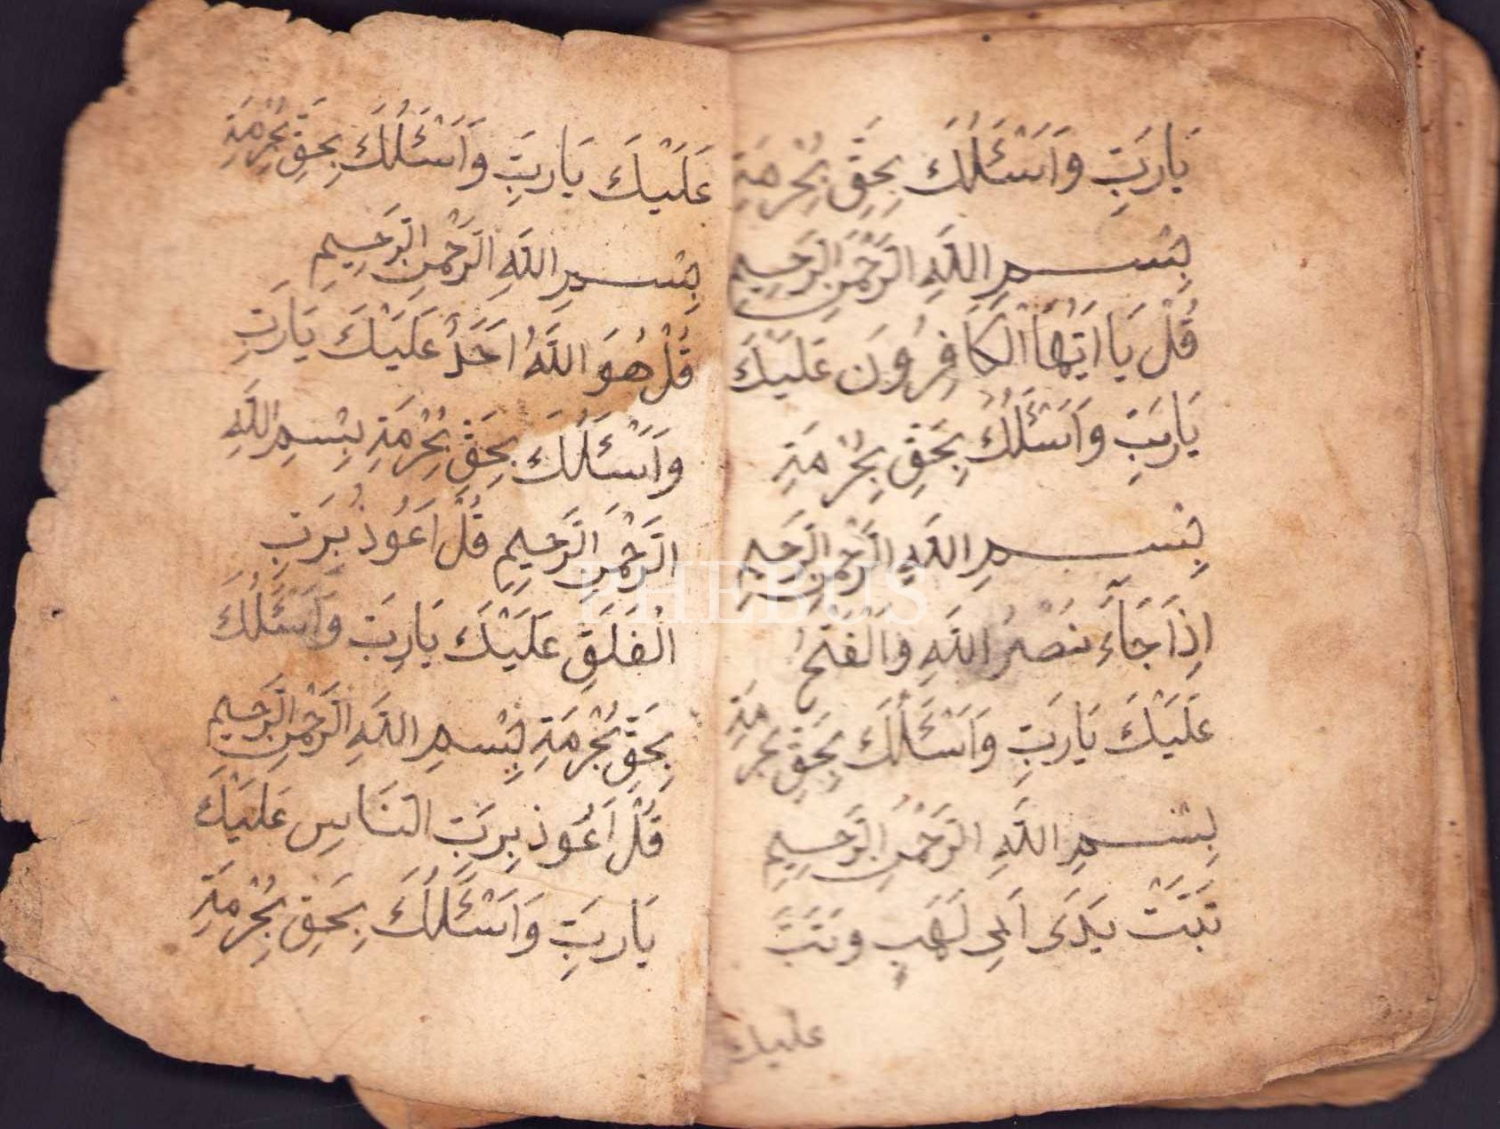 يَارَبِّ وَاَسْئَلُكَ بِحَقِّ بِحُرْمَةِ
بِسْمِ اللَّهِ الرَّحْمٰنِ الرَّحِيمِ
قُلْ يَا اَيُّهَا الْكَافِرُونَ عَلَيْكَ
يَارَبِّ وَاَسْئَلُكَ بِحَقِّ بِحُرْمَةِ
بِسْمِ اللَّهِ الرَّحْمٰنِ الرَّحِيمِ
اِذَا جَآءَ نَصْرُ اللَّهِ وَالْفَتْحُ
عَلَيْكَ يَارَبِّ وَاَسْئَلُكَ بِحَقِّ بِحُرْمَةِ
بِسْمِ اللَّهِ الرَّحْمٰنِ الرَّحِيمِ
تَبَّتْ يَدَى اَبِى لَهَبٍ وَتَبَّ
عليك
عَلَيْكَ يَارَبِّ وَاَسْئَلُكَ بِحَقِّ بِحُرْمَةِ
بِسْمِ اللَّهِ الرَّحْمٰنِ الرَّحِيمِ
قُلْ هُوَ اللَّهُ اَحَدٌ عَلَيْكَ يَارَبِّ
وَاَسْئَلُكَ بِحَقِّ بِحُرْمَةِ بِسْمِ اللَّهِ
الرَّحْمٰنِ الرَّحِيمِ قُلْ اَعُوذُ بِرَبِّ
الْفَلَقِ عَلَيْكَ يَارَبِّ وَاَسْئَلُكَ
بِحَقِّ بِحُرْمَةِ بِسْمِ اللَّهِ الرَّحْمٰنِ الرَّحِيمِ
قُلْ اَعُوذُ بِرَبِّ النَّاسِ عَلَيْكَ
يَارَبِّ وَاَسْئَلُكَ بِحَقِّ بِحُرْمَةِ
PHEBUS